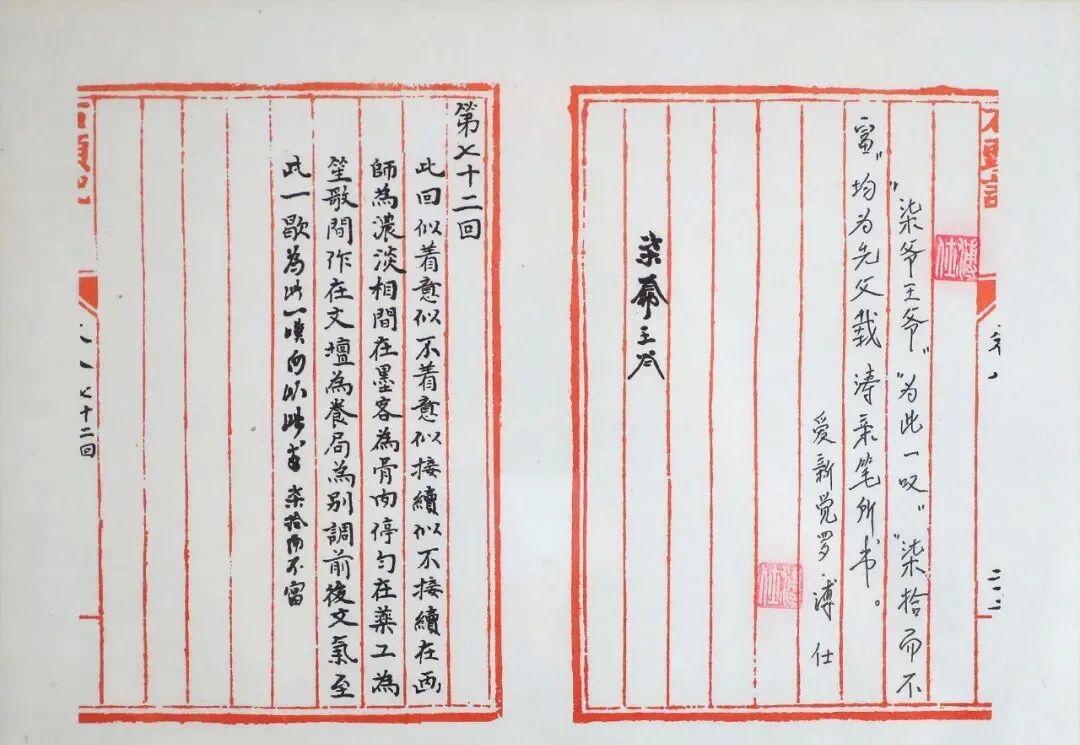 “柒爷王爷”“为此一叹”“柒拾而不
富”均为先父载涛亲笔所书。
爱新觉罗 溥仕
溥仕
溥仕
柒爺王爺
第七十二回
此回似着意似不着意似接續似不接續在画
師為濃淡相間在墨客為骨肉停勻在樂工為
笙歌間作在文壇為養局為別調前後文氣至
此一歇為此一嘆 以此 柒拾而不富
石頭記
七十二回